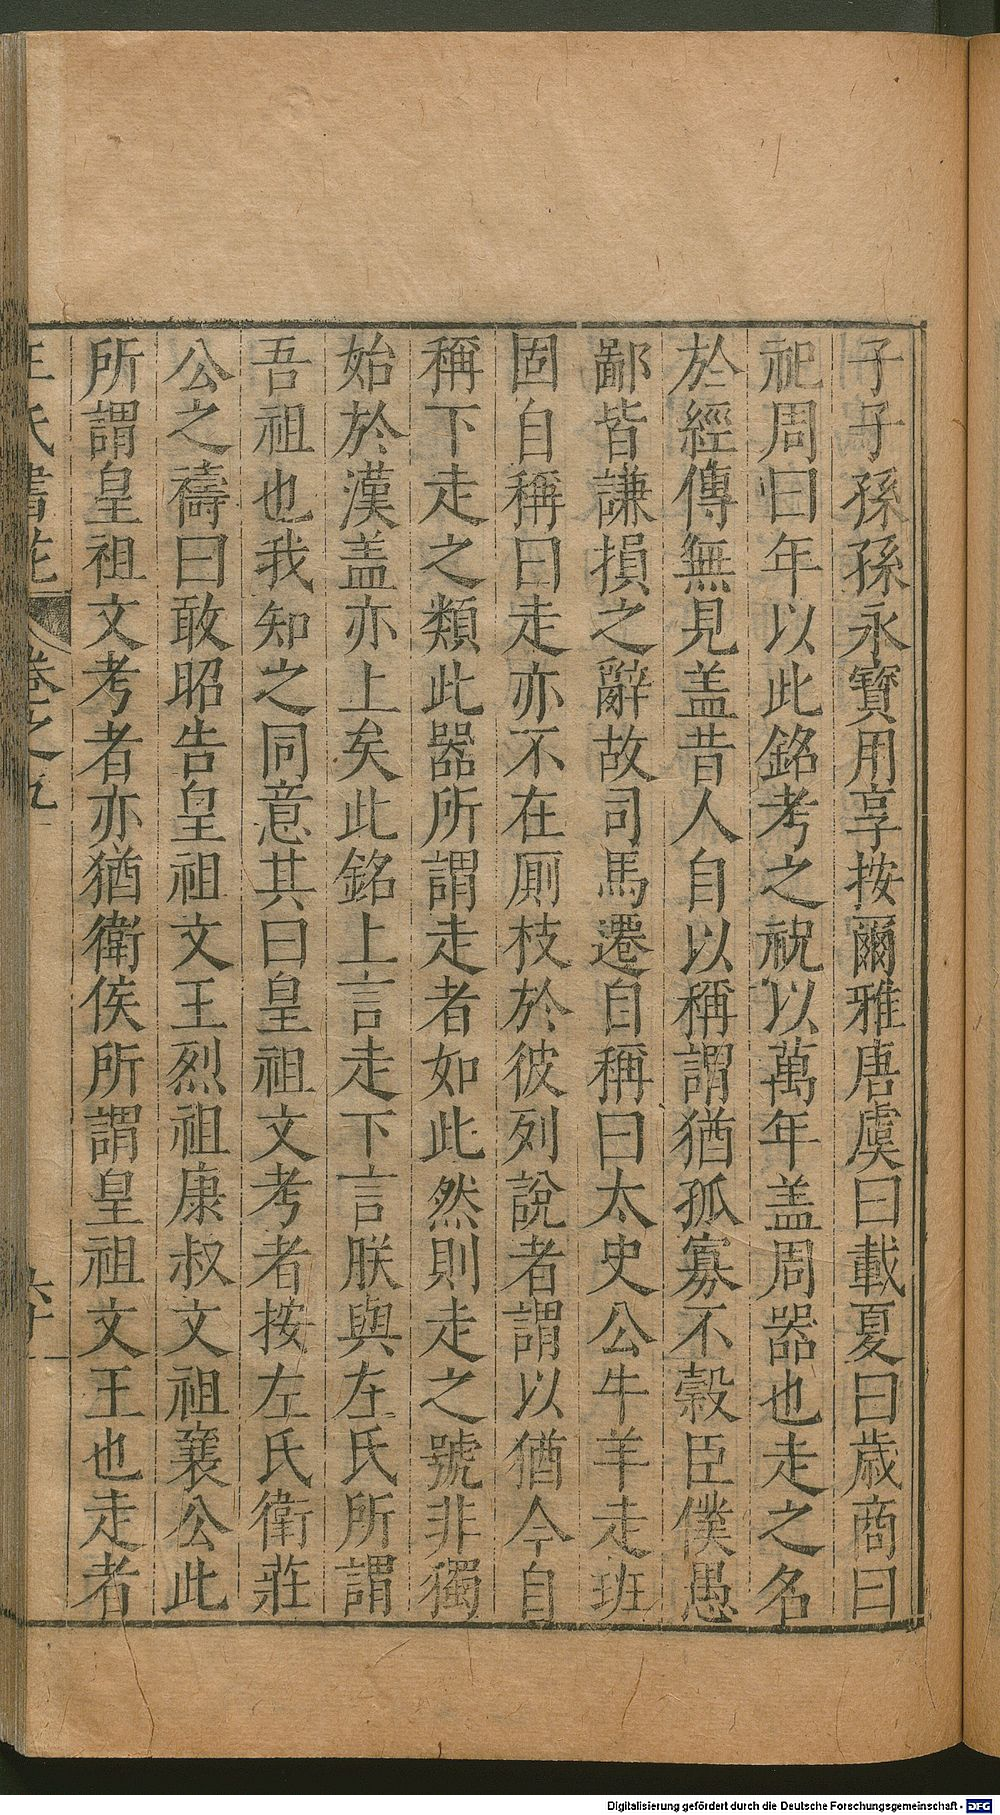 子子孫孫永寳用享按爾雅唐虞曰載夏曰歳商曰
祀周曰年以此銘考之祝以萬年盖周器也走之名
於經傳無見盖昔人自以稱謂猶孤寡不穀臣僕愚
鄙皆謙損之辭故司馬遷自稱曰太史公牛羊走班
固自稱曰走亦不在厠枝於彼列說者謂以猶今自
稱下走之類此器所謂走者如此然則走之號非獨
始於漢盖亦上矣此銘上言走下言朕與左氏所謂
吾祖也我知之同意其曰皇祖文考者按左氏衛莊
公之禱曰敢昭告皇祖文王烈祖康叔文祖襄公此
所謂皇祖文考者亦猶衛侯所謂皇祖文王也走者
卷之九
Digitalisierung gefördert durch die Deutsche Forschungsgemeinschaft - DFG